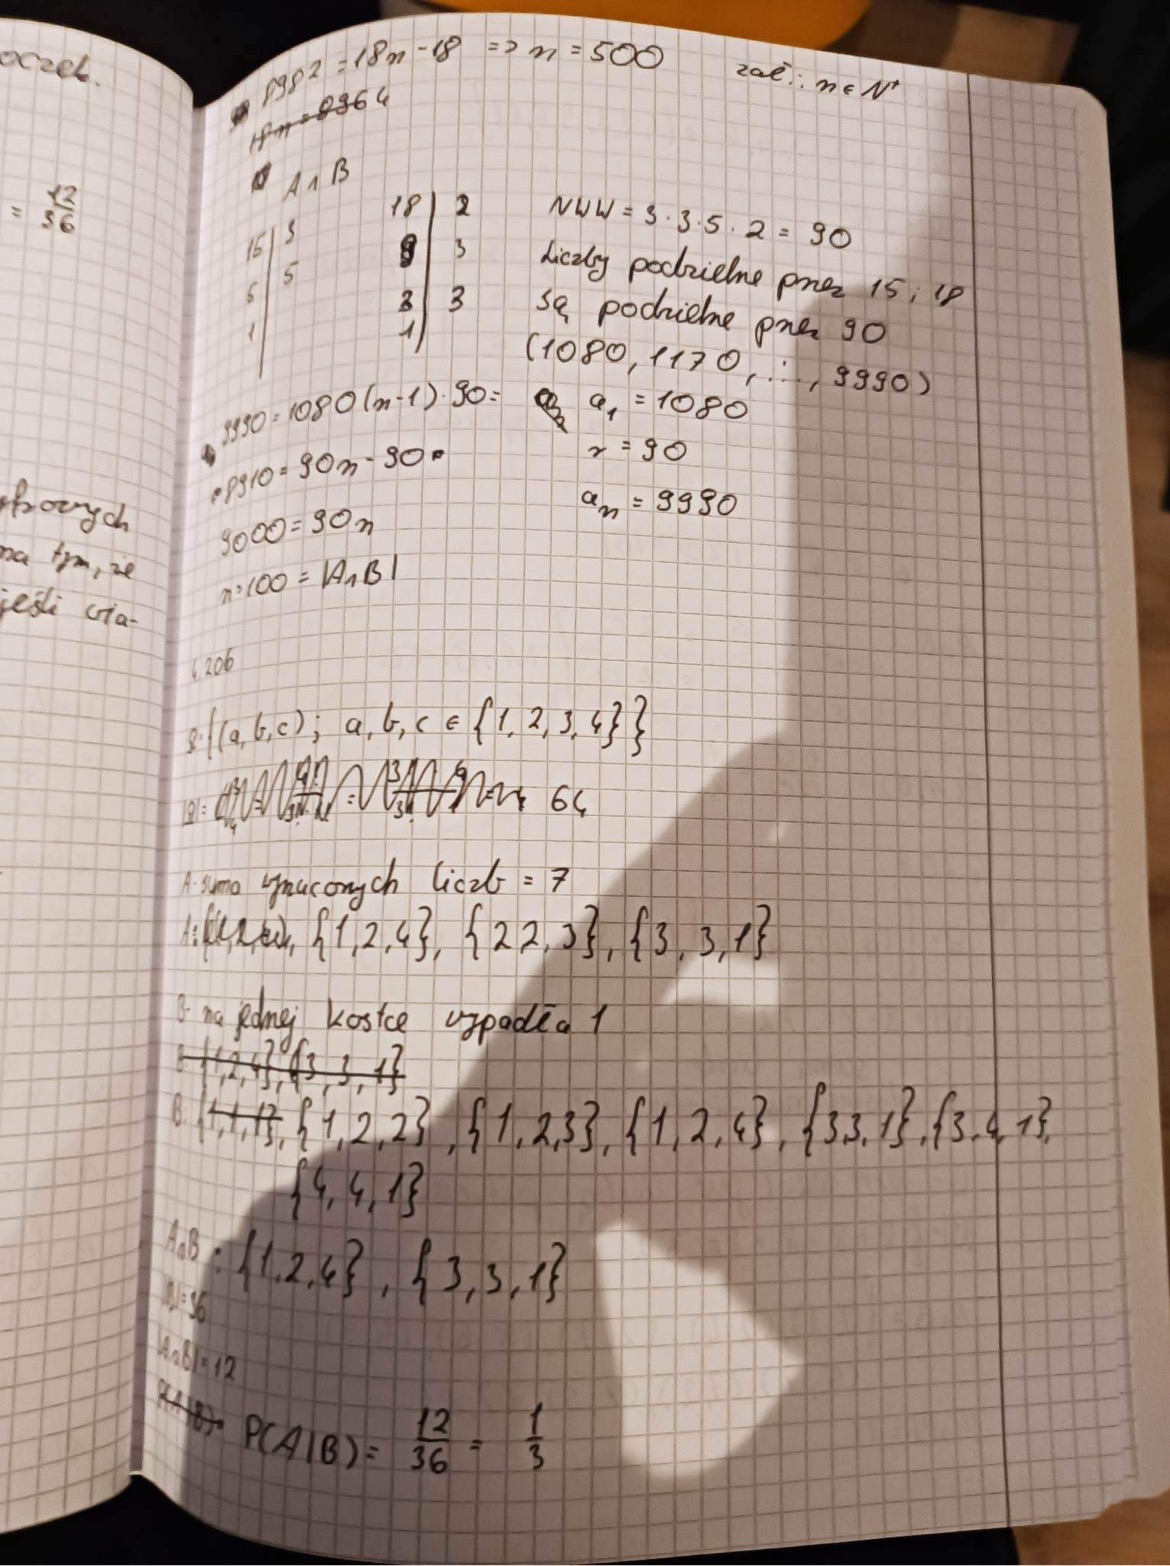 oczek.
= 12/36
frowych
na tym, że
jeśli wia-
8982 = 18n - 18 => n = 500 zał.: n ∈ N⁺
18n = 8964
A ∩ B
15 | 3 18 | 2 NWW = 3 · 3 · 5 · 2 = 90
5 | 5 9 | 3 Liczby podzielne przez 15 i 18
1 | 3 | 3 są podzielne przez 90
1 | (1080, 1170, ..., 9990)
9990 = 1080 (n-1) · 90 = a₁ = 1080
8910 = 90n - 90 r = 90
9000 = 90n aₙ = 9990
n = 100 = |A∩B|
4.206
Ω = {(a, b, c); a, b, c ∈ {1, 2, 3, 4}}
|Ω| = 64
A - suma wyrzuconych liczb = 7
A: {1, 2, 4}, {2 2, 3}, {3, 3, 1}
B - na jednej kostce wypadła 1
B: {1, 2, 4}, {3, 3, 1}
B: {1, 1, 1}, {1, 2, 2}, {1, 2, 3}, {1, 2, 4}, {3 3, 1}, {3, 4, 1},
{4, 4, 1}
A∩B : {1, 2, 4}, {3, 3, 1}
|B| = 36
|A∩B| = 12
P(A|B) = 12/36 = 1/3